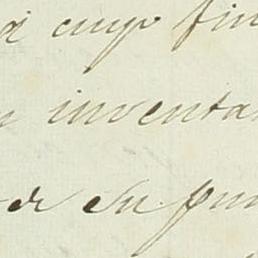 a cuyo fin
inventa
de su pun